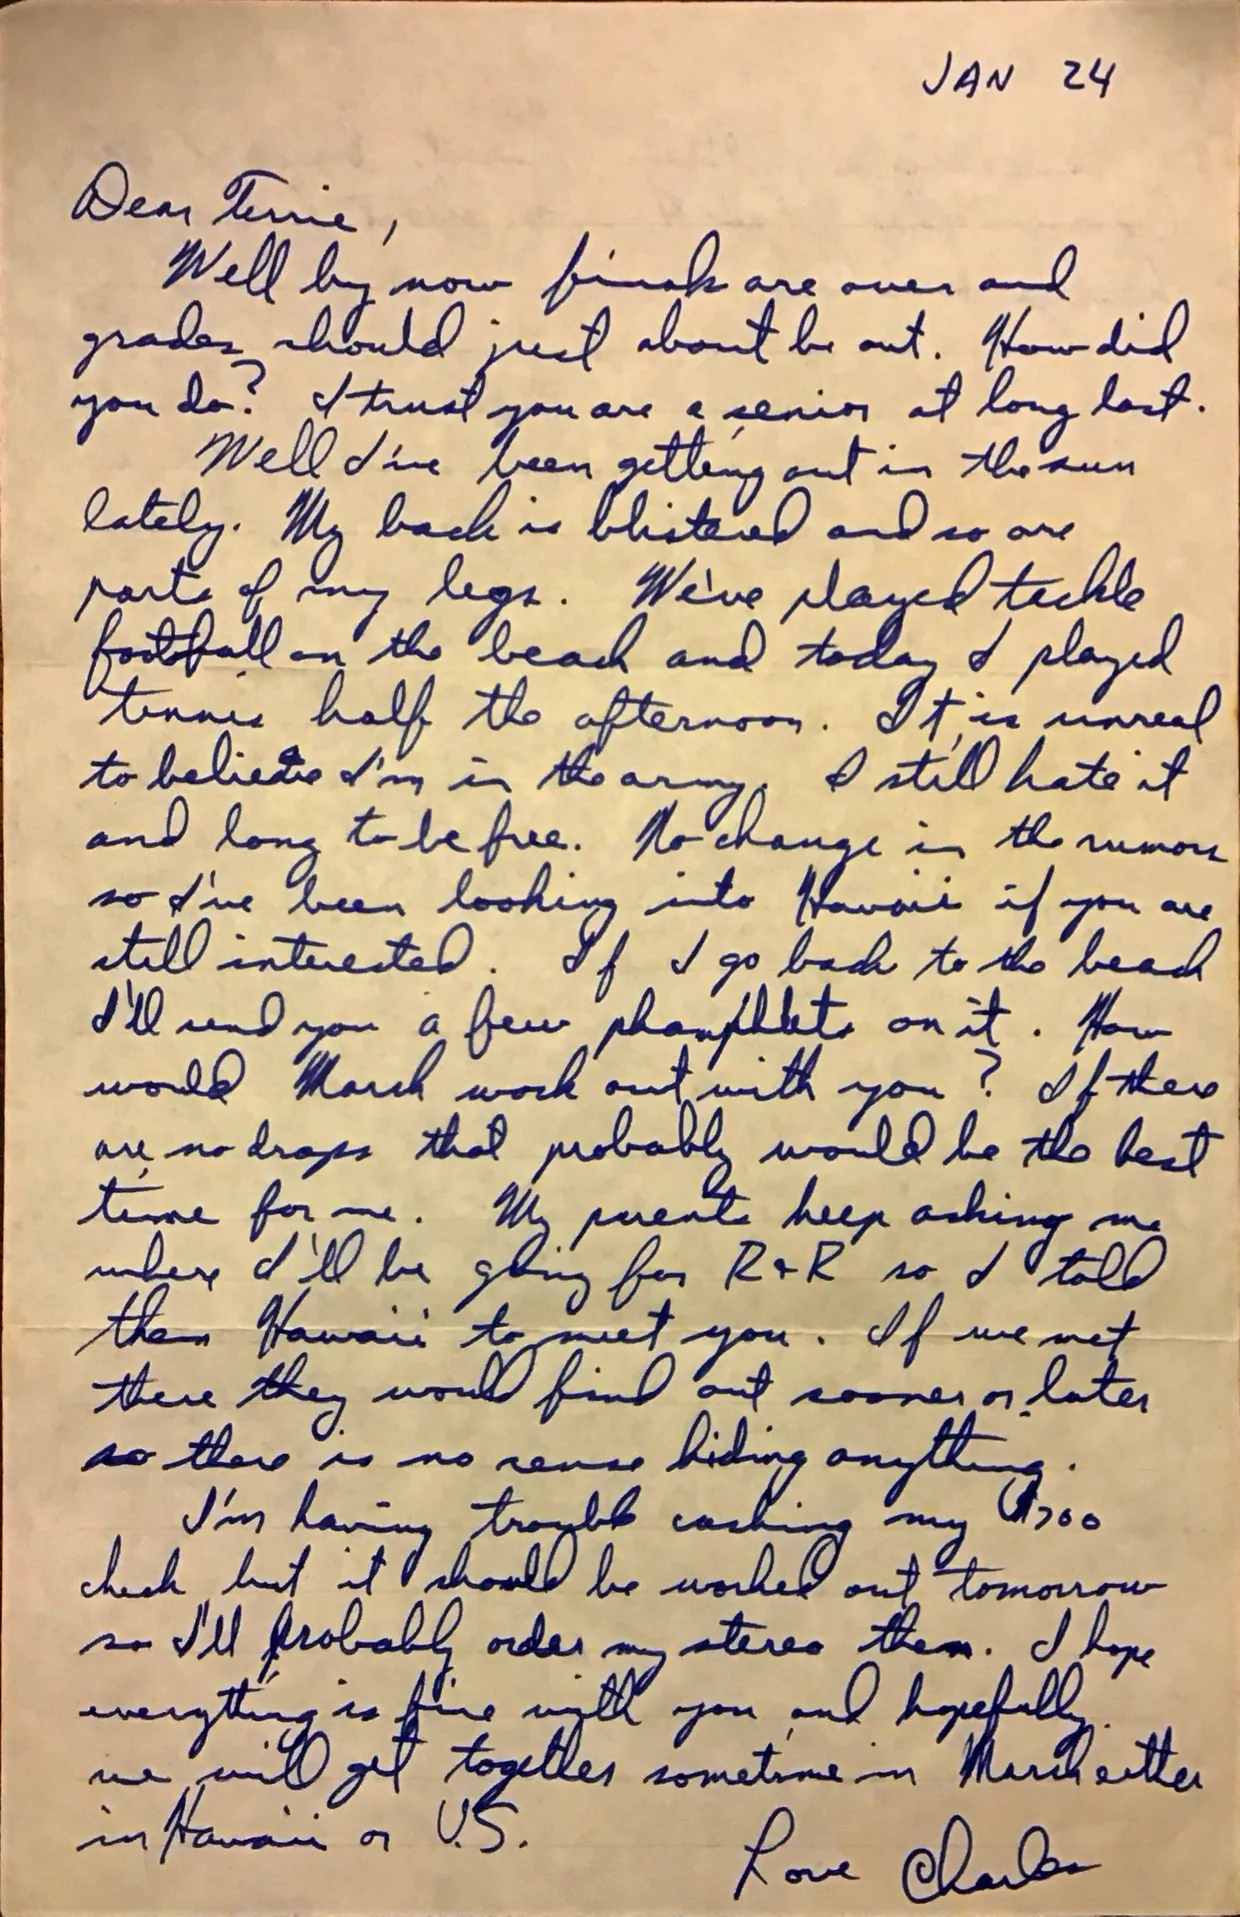 JAN 24
Dear Terrie,
Well by now finals are over and
grades should just about be out. How did
you do? I trust you are a senior at long last.
Well I've been getting out in the sun
lately. My back is blistered and so are
parts of my legs. We've played tackle
football on the beach and today I played
tennis half the afternoon. It is unreal
to believe I'm in the army. I still hate it
and long to be free. No change in the rumors
so I've been looking into Hawaii if you are
still interested. If I go back to the beach
I'll send you a few phamphlets on it. How
would March work out with you? If there
are no drops that probably would be the best
time for me. My parents keep asking me
where I'll be going for R+R so I told
them Hawaii to meet you. If we met
there they would find out sooner or later
so there is no sense hiding anything.
I'm having trouble cashing my $700
check but it should be worked out tomorrow
so I'll probably order my stereo then. I hope
everything is fine with you and hopefully
we will get together sometime in March either
in Hawaii or U.S.
Love Charles